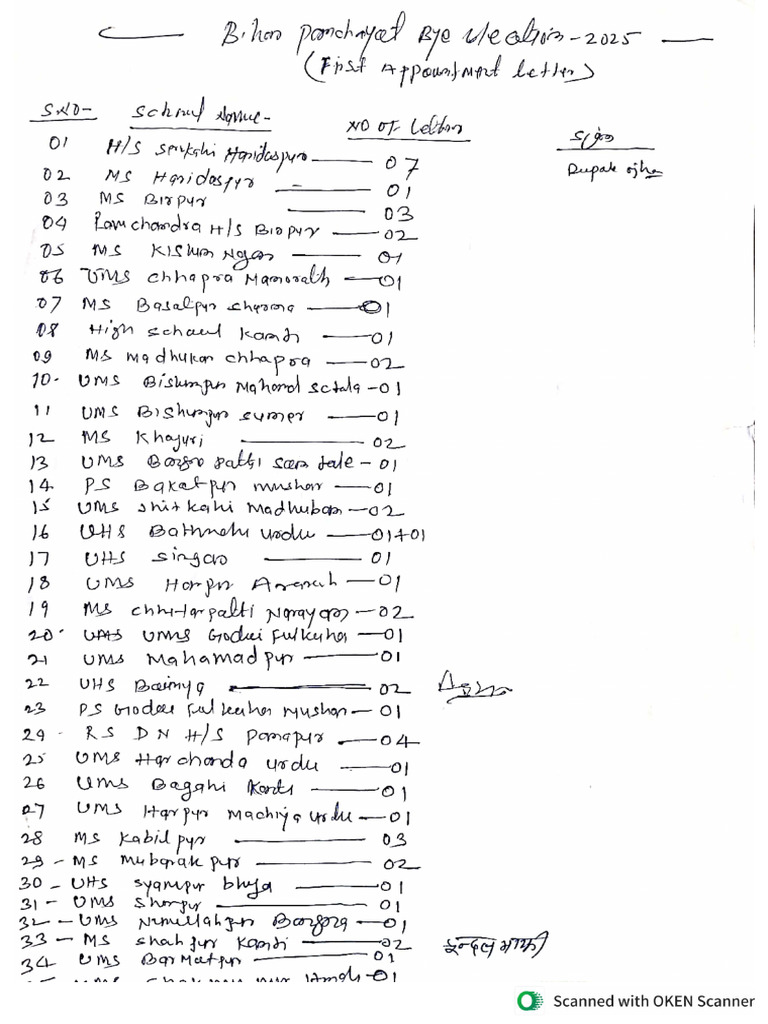 Bihar Panchayat Bye Election - 2025
(First Appointment Letter)
S.NO- School Name- NO OF Letter Sign
01 H/S Haridaspur 07 Dupak ojha
02 MS Haridaspur 01
03 MS Birpur 03
04 Ramchandra H/S Birpur 02
05 MS Kishun Ngar 01
06 UMS Chhapra Manorath 01
07 MS Basatpur 01
08 High School Kanti 01
09 MS Madhukar Chhapra 02
10- UMS Bishunpur 01
11 UMS Bishunpur Sumer 01
12 MS Khajuri 02
13 UMS 01
14 PS mushar 01
15 UMS Madhuban 02
16 UHS urdu 01+01
17 UHS 01
18 UMS Harpur 01
19 MS Narayan 02
20- UMS Godai Fulkaha 01
21 UMS Mahamadpur 01
22 UHS 02
23 PS Godai Fulkaha Mushar 01
24- RS DN H/S Panapur 04
25 UMS Harchanda urdu 01
26 UMS Bagahi Kanti 01
27 UMS Harpur Machiya urdu 01
28 MS Kabilpur 03
29- MS Mubarakpur 02
30- UHS Syampur bhoja 01
31- UMS Sherpur 01
32- UMS 01
33- MS Shahpur Kanti 02
34 UMS Barmatpur 01
01
Scanned with OKEN Scanner